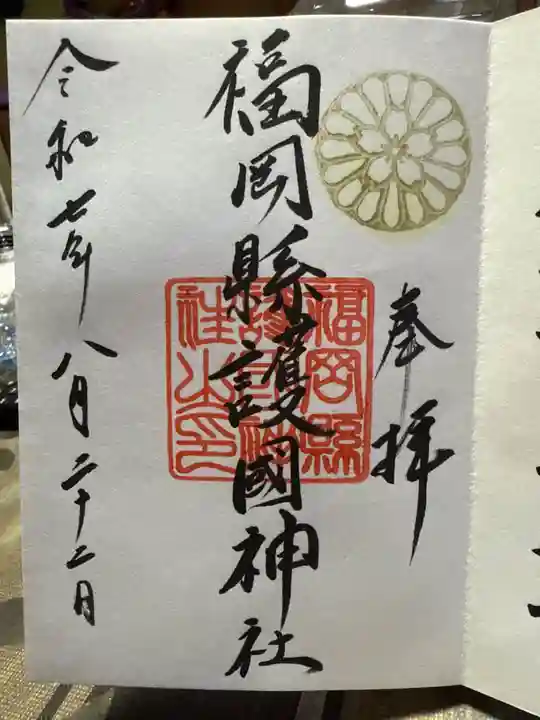 奉拝
福岡縣護國神社
福岡縣護國神社之印
令和七年八月二十二日